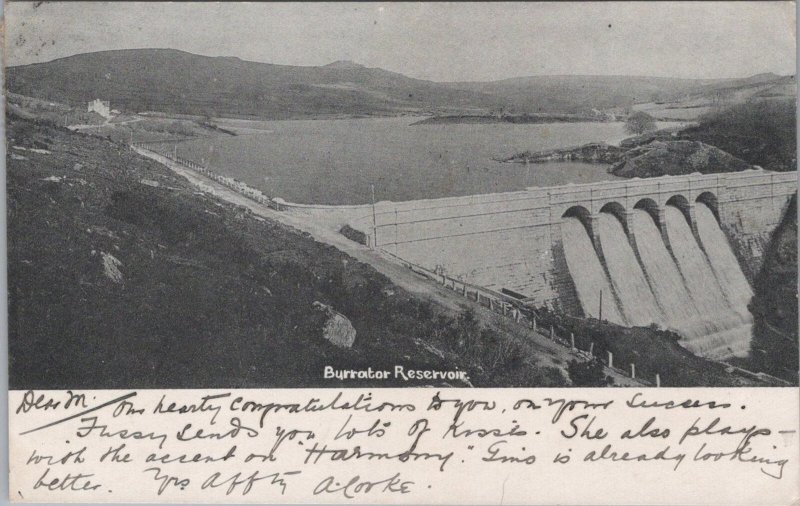 Burrator Reservoir.
Dear M. Our hearty Congratulations to you, on your Success.
Fussy sends you lots of Kisses. She also plays —
with the accent on "Harmony". is already looking
better. Yrs Affty A. Cooke.